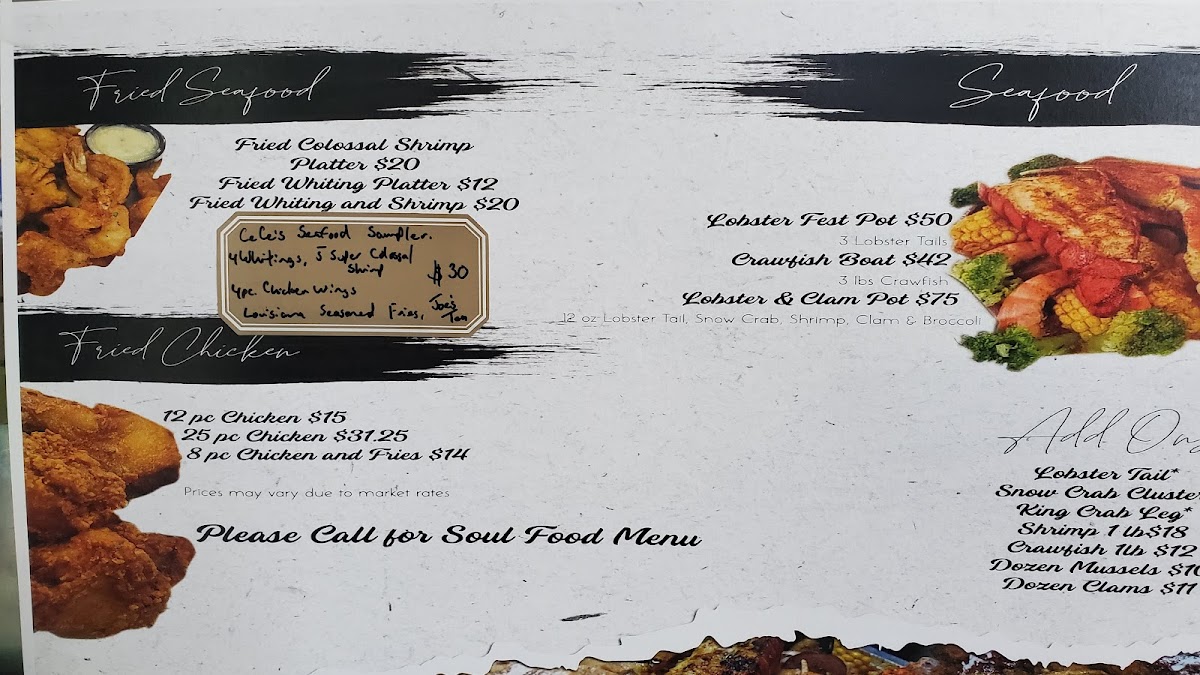 Fried Seafood
Fried Colossal Shrimp
Platter $20
Fried Whiting Platter $12
Fried Whiting and Shrimp $20
CeCe's Seafood Sampler.
4 Whitings, 5 Super Colossal
Shrimp
$30
4pc. Chicken Wings
Louisiana Seasoned Fries,
Fried Chicken
12 pc Chicken $15
25 pc Chicken $31.25
8 pc Chicken and Fries $14
Prices may vary due to market rates
Please Call for Soul Food Menu
Seafood
Lobster Fest Pot $50
3 Lobster Tails
Crawfish Boat $42
3 lbs Crawfish
Lobster & Clam Pot $75
12 oz Lobster Tail, Snow Crab, Shrimp, Clam & Broccoli
Add Ons
Lobster Tail*
Snow Crab Cluster
King Crab Leg*
Shrimp 1 lb$18
Crawfish 1lb $12
Dozen Mussels $10
Dozen Clams $11